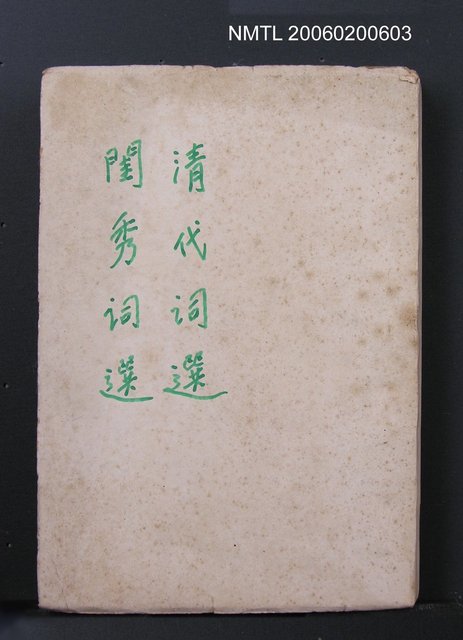 NMTL 20060200603
清代词選
閨秀词選